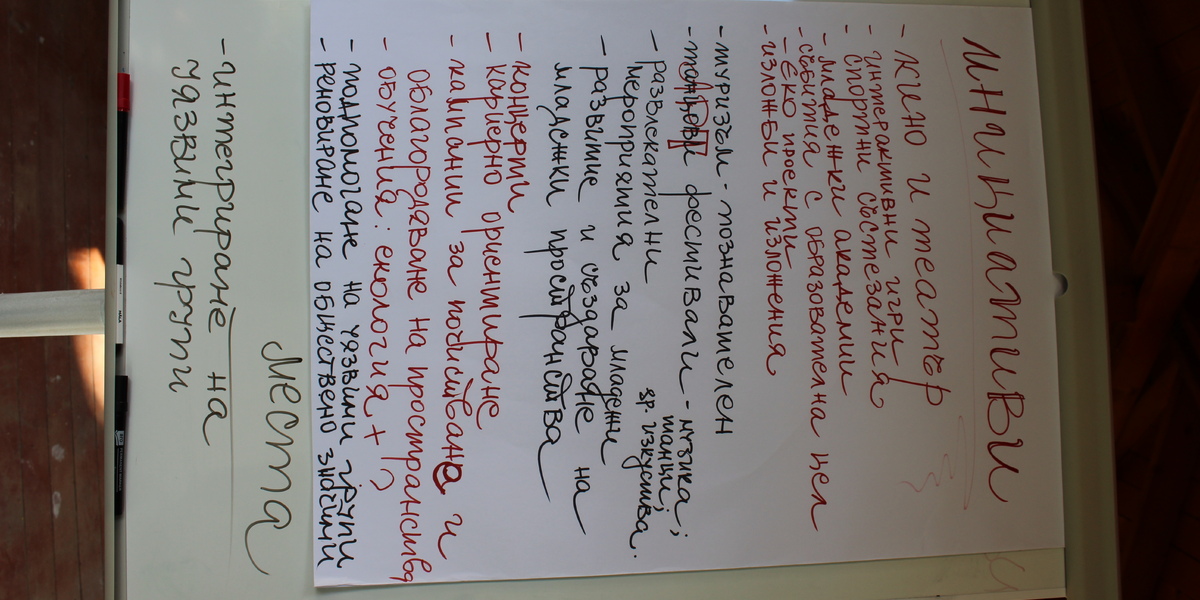 инициативи
- кино и театър
- интерактивни игри
- спортни състезания
- младежки академии
- събития с образователна цел
- еко проекти
- изложби и изложения
- туризъм - познавателен
- танцови фестивали - музика;
танци;
sp. изкуства.
- развлекателни
мероприятия за младежи
- развитие и създаване на
младежки пространства
- концерти
- кариерно ориентиране
- кампании за почистване и
облагородяване на пространства
- обучения: екология + ?
- подпомагане на уязвими групи
- реновиране на обществено значими
места
- интегриране на
уязвими групи